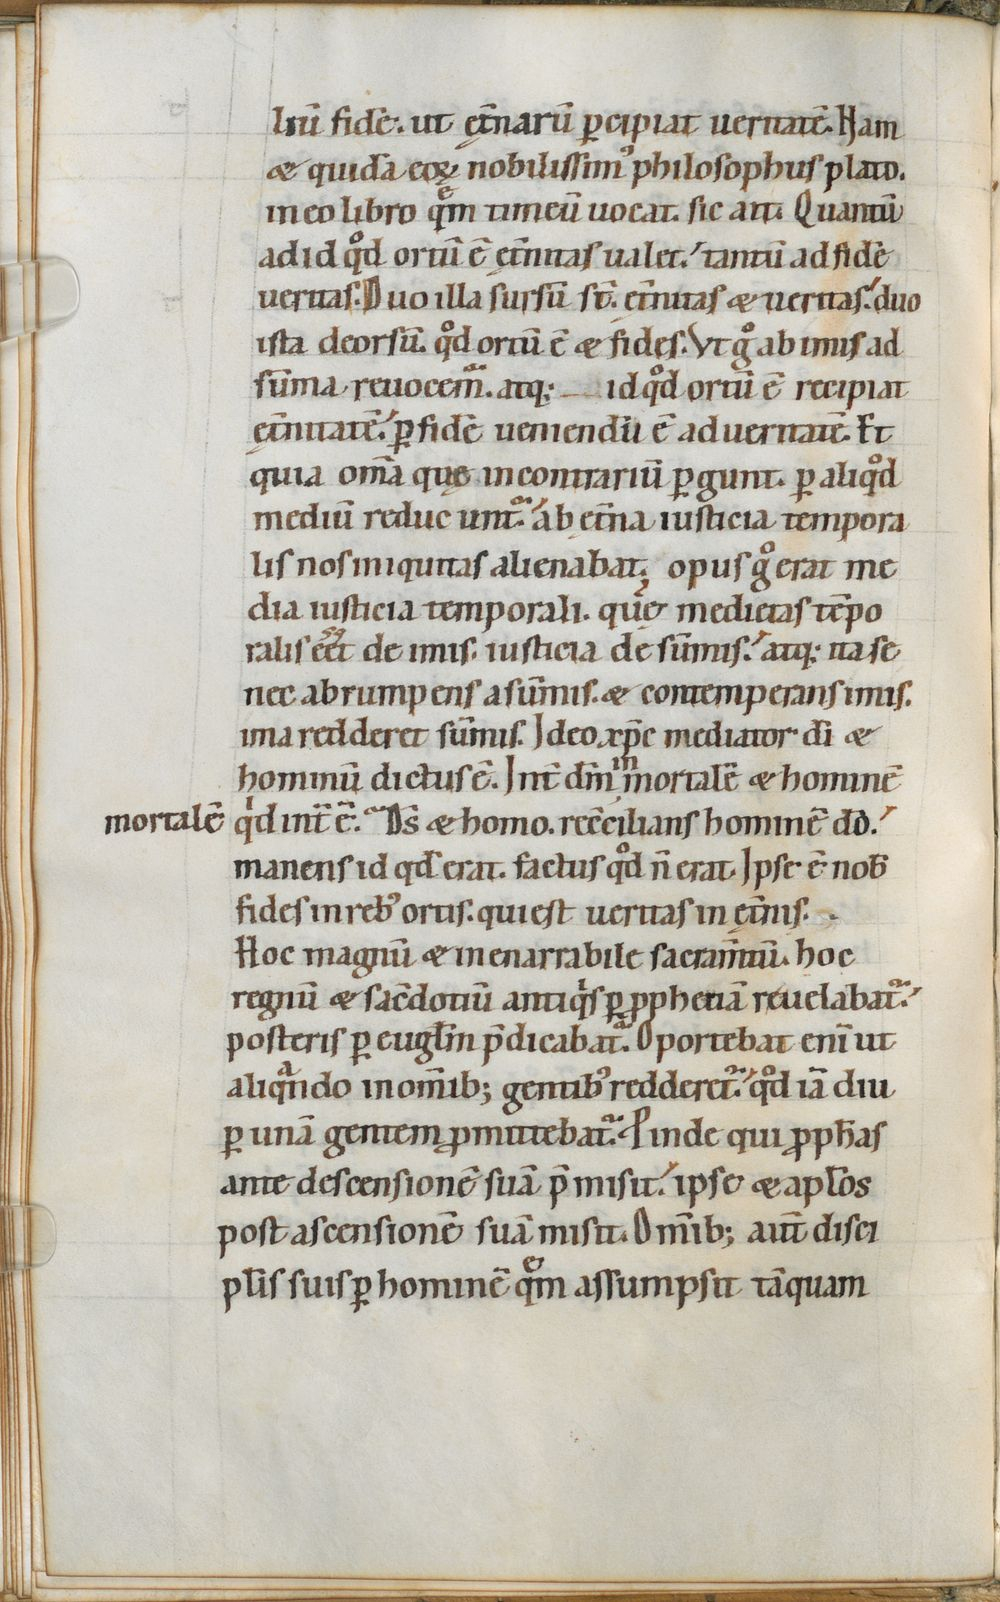 liũ fidē. ut ęt̄narũ ꝑcipiat ueritatē. Nam
& quidā eoꝝ nobilissim᾽ philosophus plato.
in eo libro qͤm timeũ uocat. sic ait. Quantũ
ad id qͦd ortũ ē ęt̄nitas ualet.᾽ tantũ ad fidē
ueritas. Duo illa sursũ st̄. ęt̄nitas & ueritas.᾽ duo
ista deorsũ. qͦd ortũ ē & fides. Vt gͦ ab imis ad
sũma reuocem̄. atq; id qͦd ortũ ē recipiat
ęt̄nitatē.᾽ ꝑ fidē ueniendũ ē ad ueritatē. Et
quia om̄a quę in contrariũ ꝑgunt. ꝑ aliqͦd
mediũ reducunt᷒.᾽ ab ęt̄na iusticia tempora
lis nos iniquitas alienabat. opus gͦ erat me
dia iusticia temporali. quę medietas tēpo
ralis eēt de imis. iusticia de sũmis.᾽ atq; ita se
nec abrumpens a sũmis. & contemperans imis.
ima redderet sũmis. Ideo xp̄c mediator di̅ &
hominũ dictus ē. Int̄ dm̅ inmortalē & hominē
mortalē qͥd int̄ ē. Ds̅ & homo. recc̄ilians hominē dō.᾽
manens id qd̅ erat. factus qͦd n̄ erat. Ipse ē nob̅
fides in reb᾽ ortis. qui est ueritas in ęt̄nis.
Hoc magnũ & inenarrabile sacram̄tũ. hoc
regnũ & sac̄dotiũ antiqͥs ꝑ ꝓphetiā reuelabat᷒.᾽
posteris ꝑ euglm̅ p̄dicabat᷒. Oportebat eni̅ ut
aliqᷓndo in om̄ib; gentib᾽ redderet᷒.᾽ qͦd iā diu
ꝑ unā gentem ꝓmittebat᷒. Proinde qui ꝓph̅as
ante descensionē suā p̄misit.᾽ ipse & apl̅os
post ascensionē suā misit. Om̄ib; aut̄ disci
pl̅is suis ꝑ hominē qͤm assumpsit tāquam